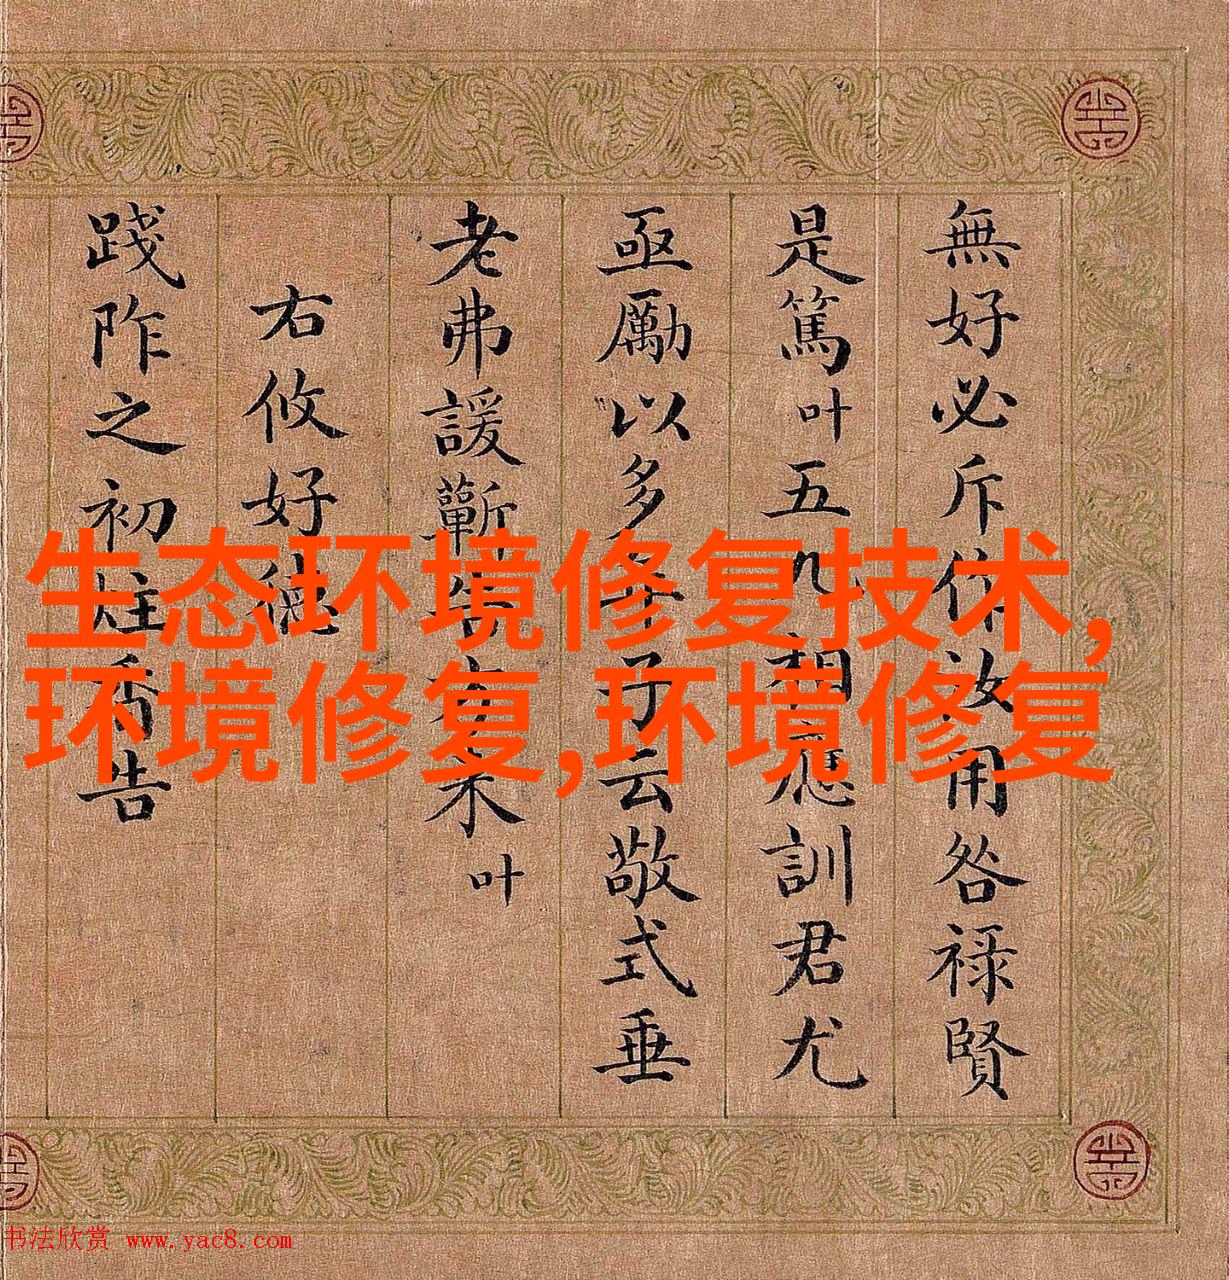 無好必斥作汝用咎祿賢
是篤叶五九相應訓君尤
亟勵以多辛予云敬式垂
老弗諼蘄告方来叶
右攸好德
踐阼之初炷香告
生态环境修复技术,
环境修复,环境修复
书法欣赏 www.yac8.com